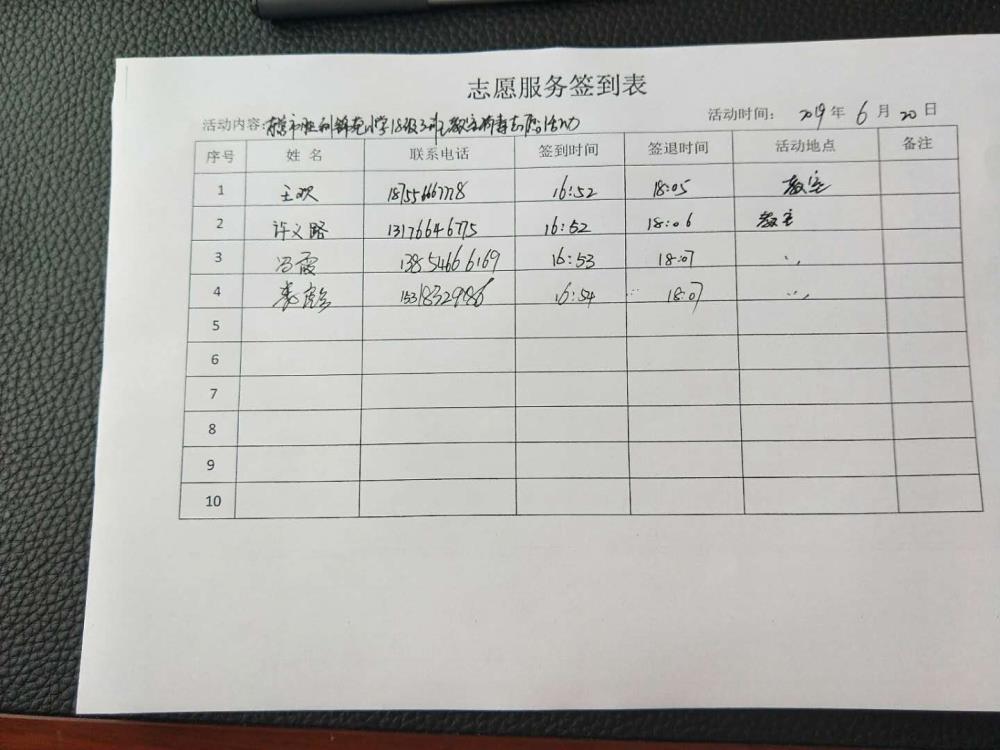 志愿服务签到表
活动内容:东营市胜利锦苑小学18级3班教室消毒志愿活动 活动时间: 2019年6月20日
序号 姓名 联系电话 签到时间 签退时间 活动地点 备注
1 王欢 18755666778 16:52 18:05 教室
2 许义路 13176646775 16:52 18:06 教室
3 冯霞 13854666169 16:53 18:07 〃
4 15318329486 16:54 18:07 〃
5
6
7
8
9
10